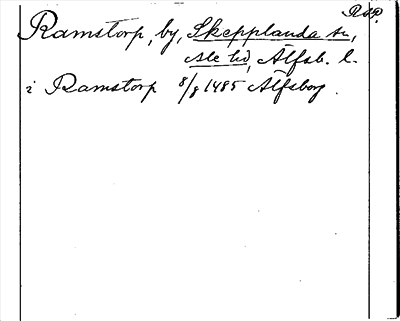 RäP.
Ramstorp, by, Skepplanda sn,
Ale hd, Älfsb. l.
i Ramstorp 8/8 1485 Älfsborg.